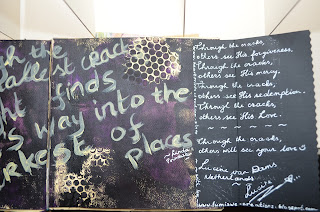 gh the
allest crack
ght finds
s way into the
rkest of
Places
Through the cracks,
others see His forgiveness,
Through the cracks,
others see His mercy,
Through the cracks,
others see His redemption.
Through the cracks,
others see His Love.
~ ~ ~ ~ ~
Through the cracks,
others will see your love
Lucine van Dam
Netherlands